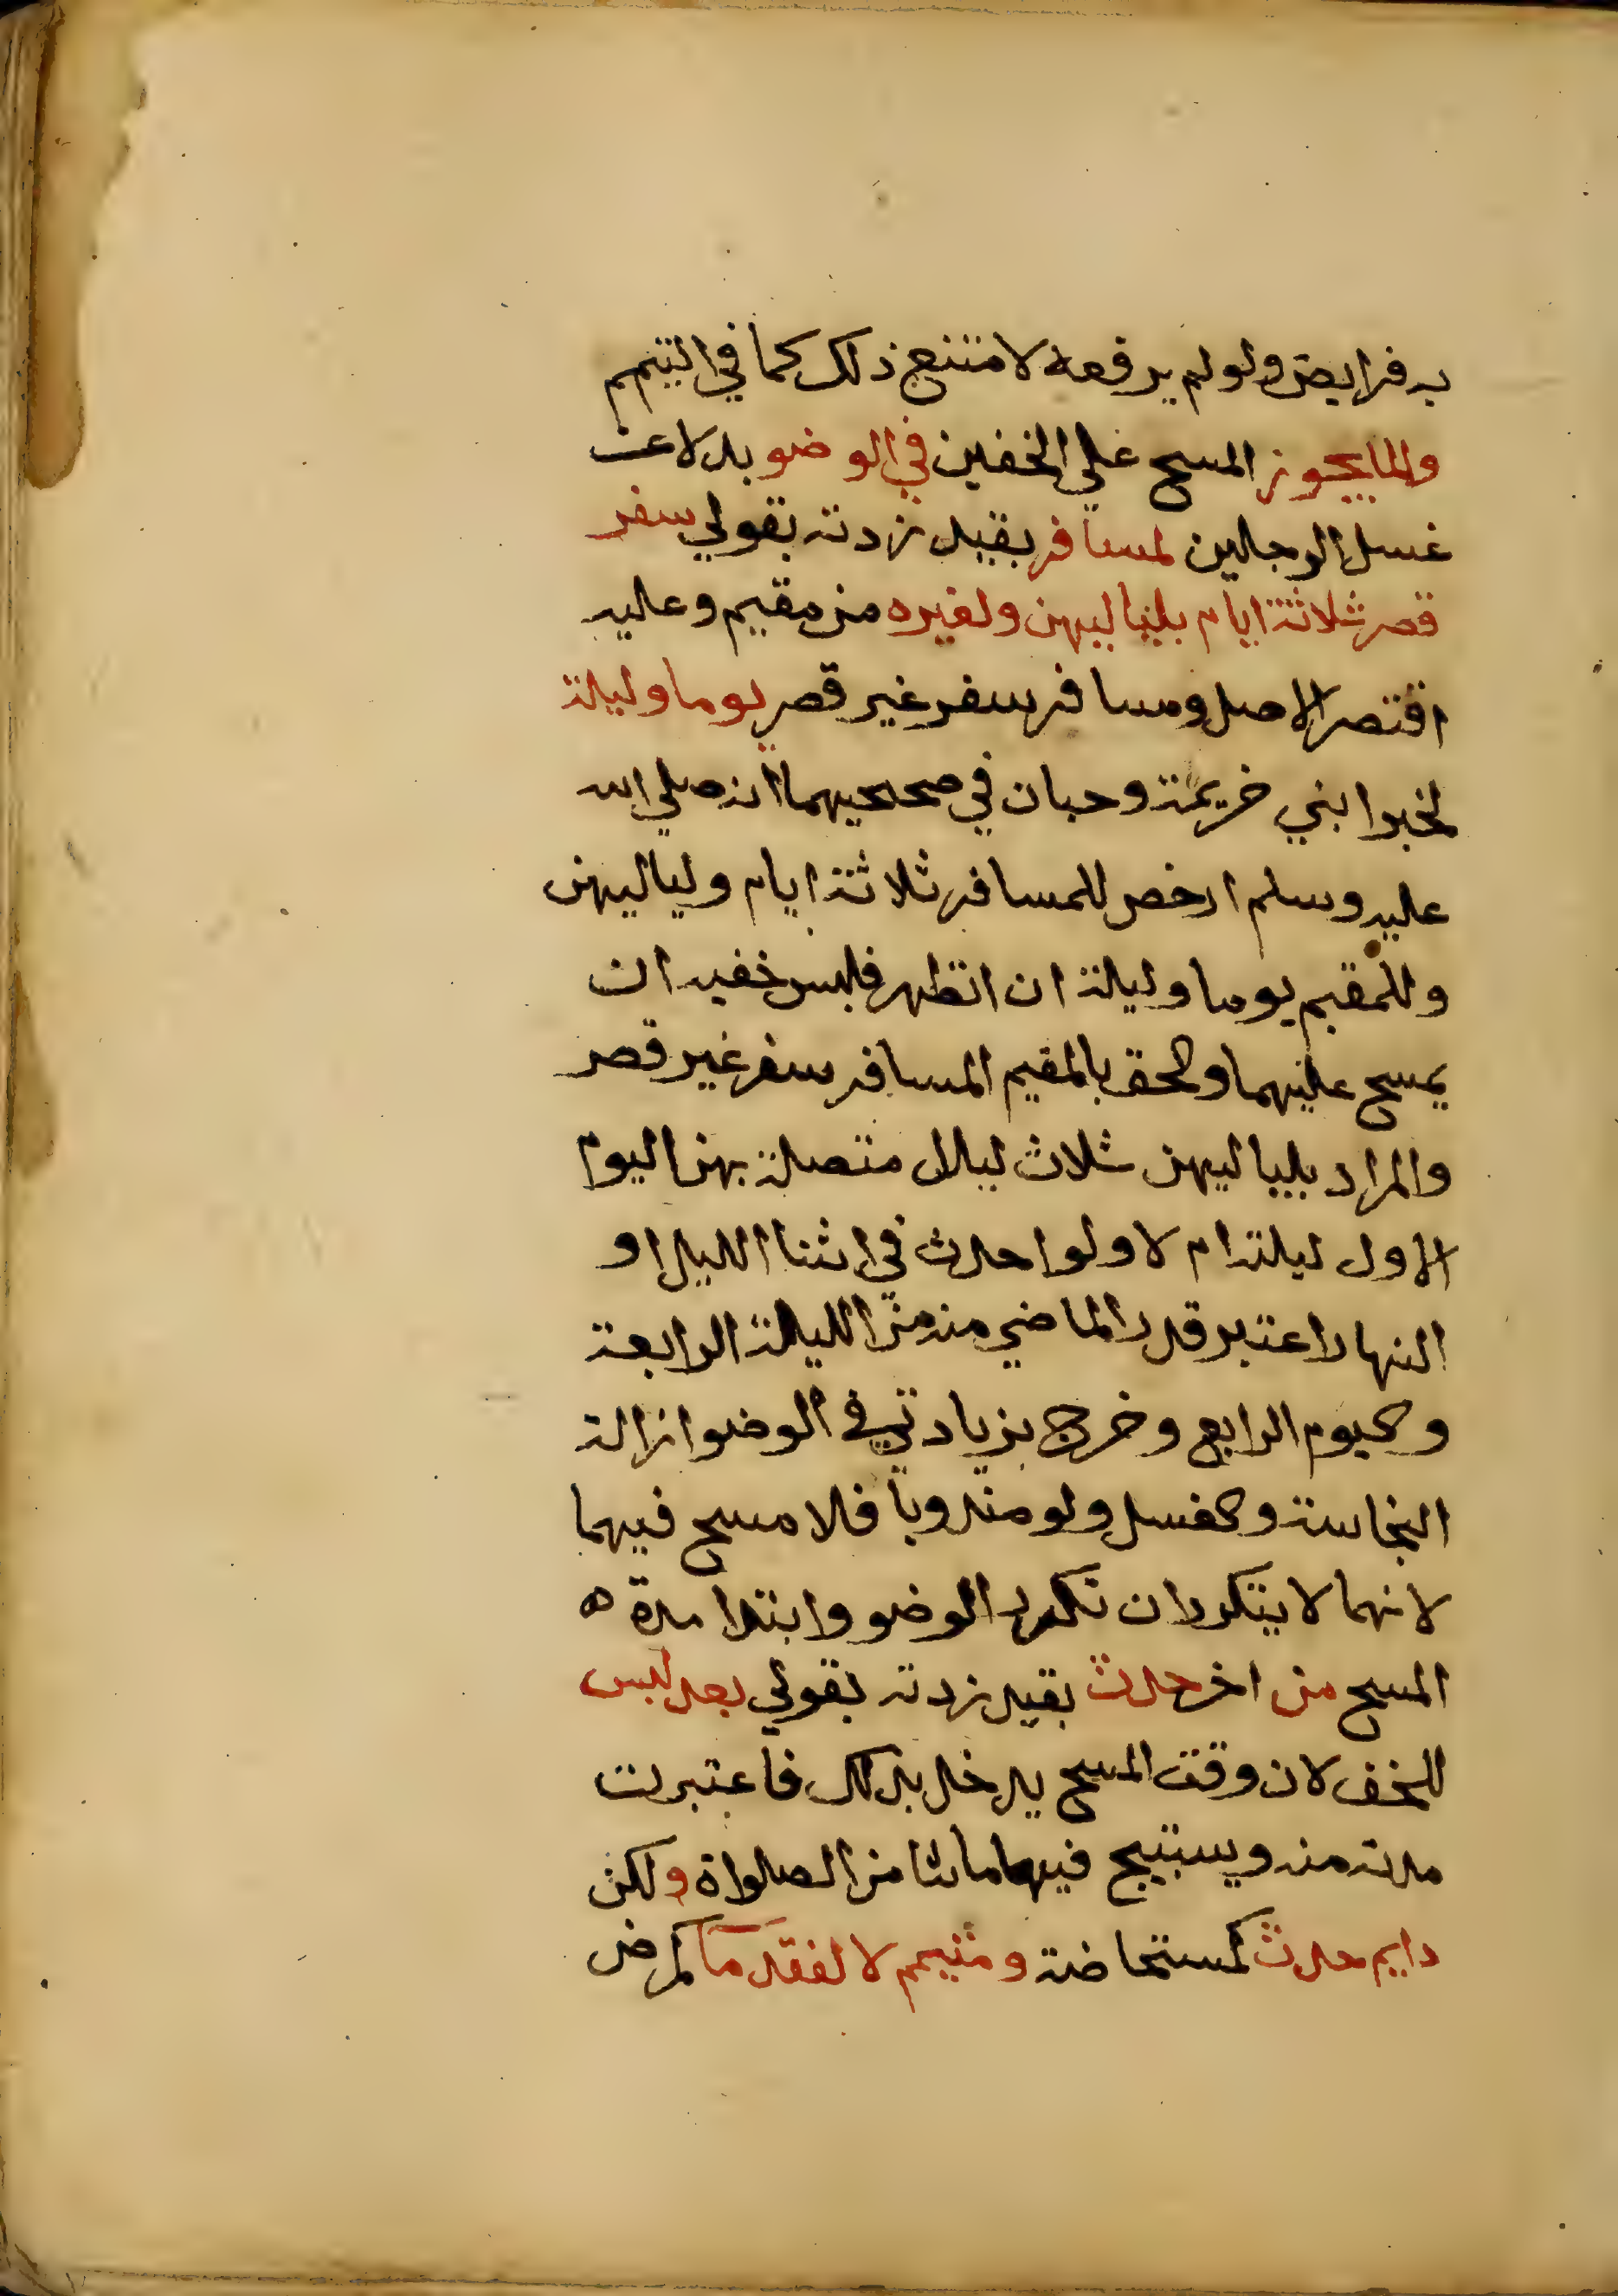 به فرايض ولو لم يرفعه لامتنع ذلك كما في التيمم
وانما يجوز المسح علي الخفين في الوضو بدلا عن
غسل الرجلين لمسافر بقيد زدته بقولي سفر
قصر ثلاثة ايام بلياليهن ولغيره من مقيم وعليه
اقتصر الاصل ومسافر سفر غير قصر يوما وليلة
لخبر ابني خزيمة وحبان في صحيحيهما انه صلي الله
عليه وسلم ارخص للمسافر ثلاثة ايام ولياليهن
وللمقيم يوما وليلة ان اتطهر فلبس خفيه ان
يمسح عليهما والحق بالمقيم المسافر سفر غير قصر
والمراد بلياليهن ثلاث ليال متصلة بهن اليوم
الاول ليلته ام لا ولو احدث في اثنا الليل او
النهار اعتبر قدر الماضي منه من الليلة الرابعة
واليوم الرابع وخرج بزيادتي في الوضو ازالة
النجاسة والغسل ولو مندوبا فلا مسح فيهما
لانهما لا يتكرران تكرر الوضو وابتدا مدة ه
المسح من اخر حدث بقيد زدته بقولي بعد لبس
للخف لان وقت المسح يدخل بذلك فاعتبرت
مدته منه ويستبيح فيها ما شا من الصلواة ولكن
دايم حدث كمستحاضة ومتيمم لا لفقد ما كمرض